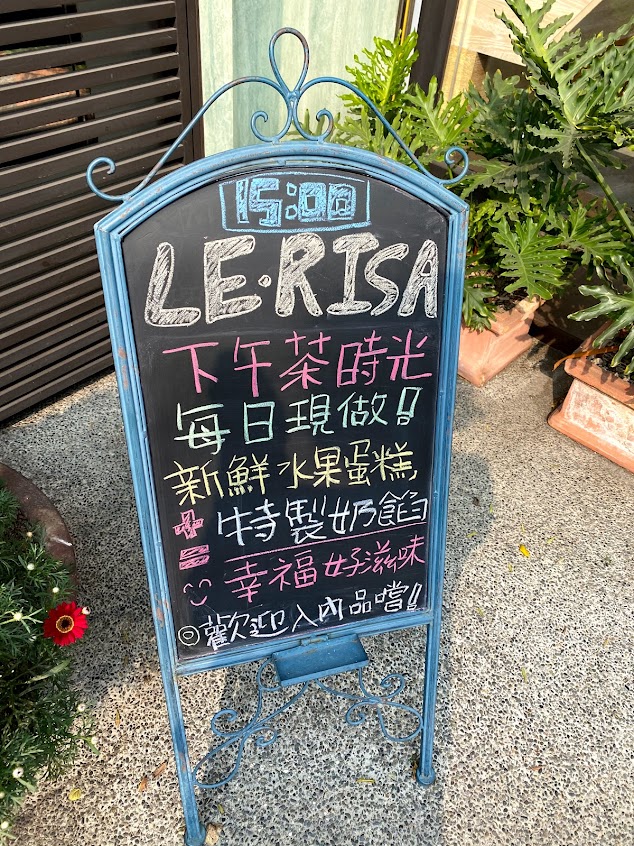 15:00
LE·RISA
下午茶時光
每日現做!!
新鮮水果蛋糕,
+ 特製奶餡
= 幸福好滋味
◎歡迎入內品嚐!!